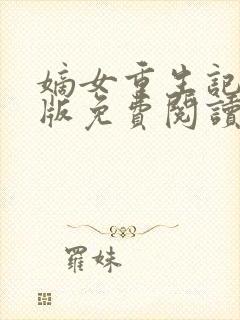 嫡女重生記
版免費閱讀
羅妹